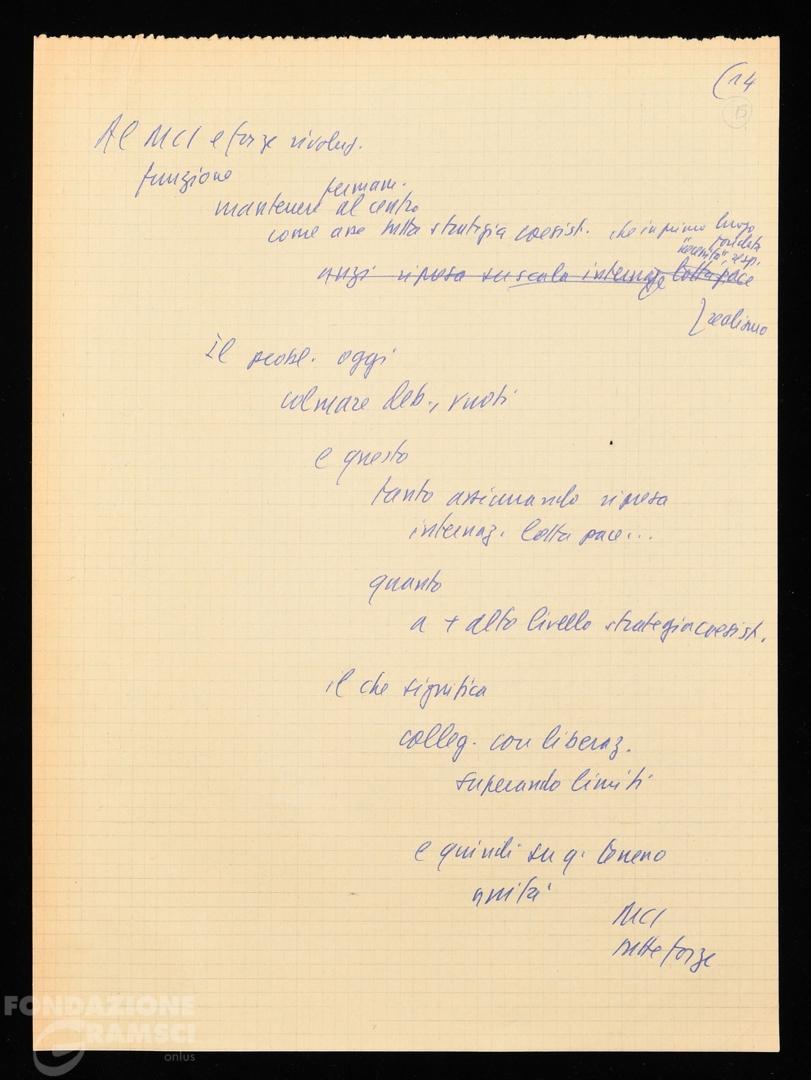 (14
15
Al MCI e forze rivoluz.
funzione
perman.
mantenere al centro
come asse tutta strategia coesist. che in primo luogo
"necessità"
anzi ripresa su scala internaz lotta pace
realismo
Il probl. oggi
colmare deb., vuoti
e questo
tanto assicurando ripresa
internaz. lotta pace...
quanto
a + alto livello strategia coesist.
il che significa
colleg. con liberaz.
superando limiti
e quindi su q. terreno
unità
MCI
tutte forze
FONDAZIONE
GRAMSCI
onlus